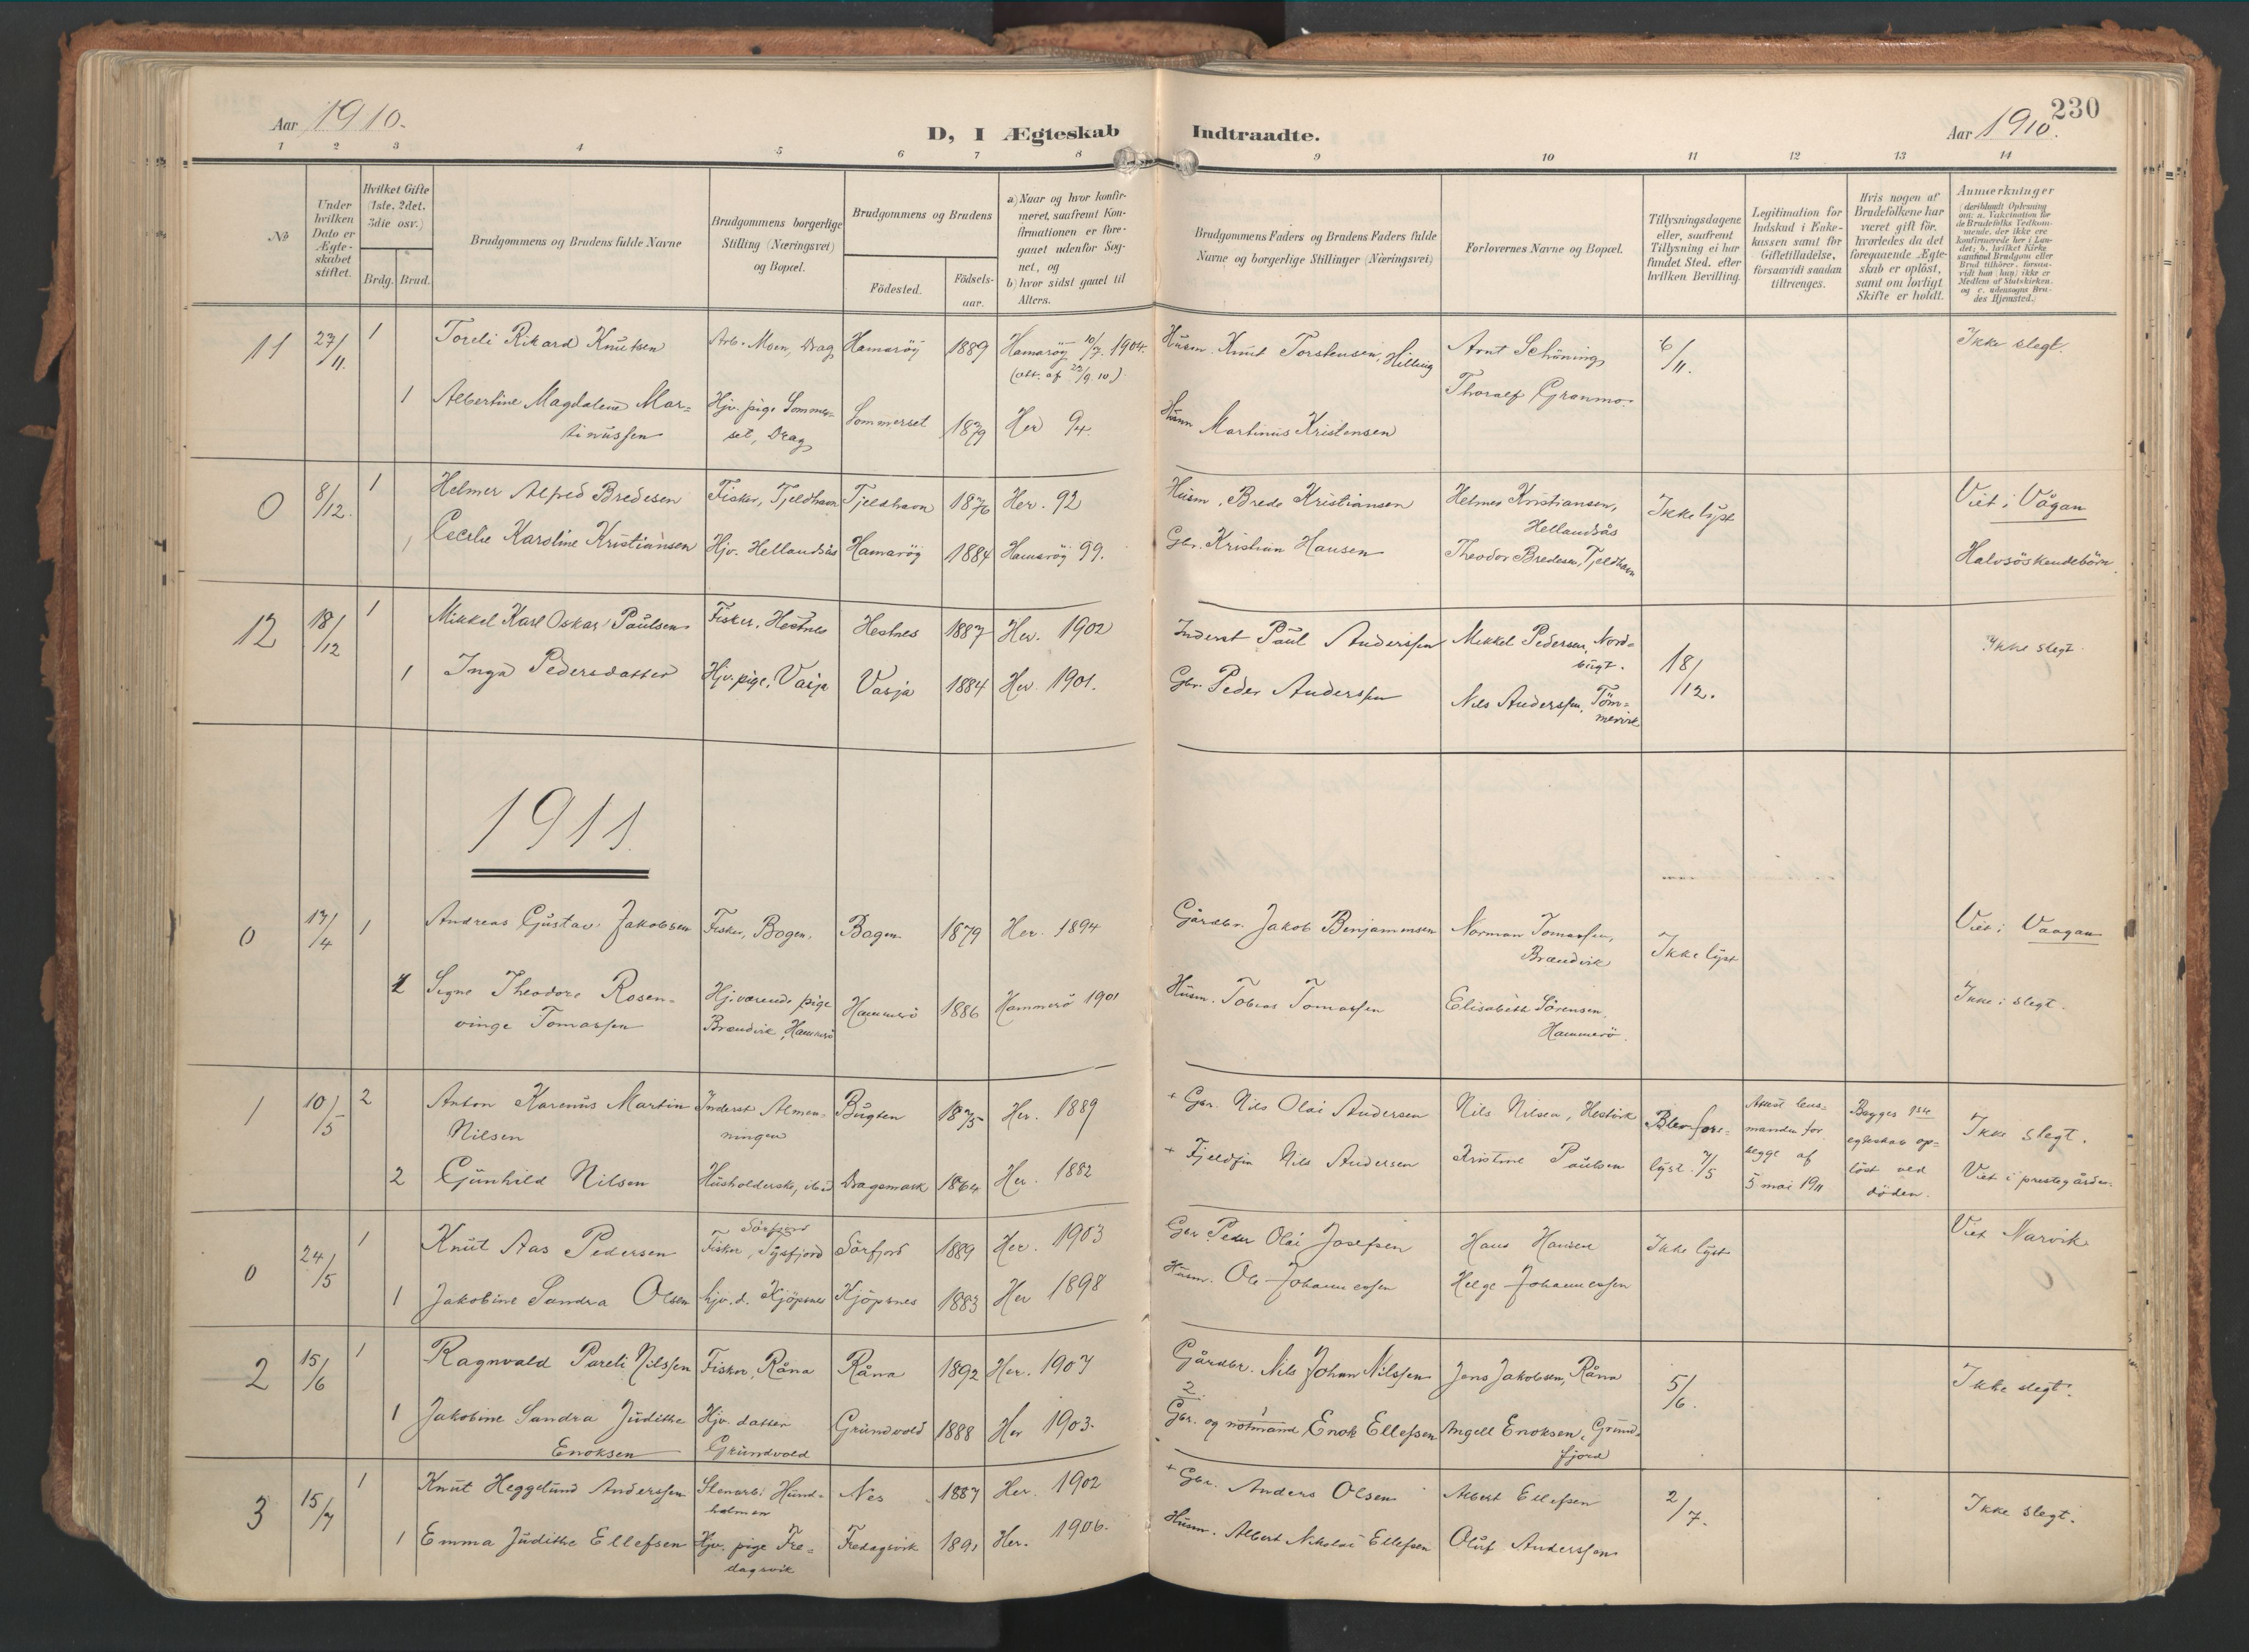 Aar 1910.
D, I Ægteskab Indtraadte.
Aar 1910.
230
1 2 3 4 5 6 7 8 9 10 11 12 13 14
No
Under hvilken Dato er Ægteskabet stiftet.
Hvilket Gifte (1ste, 2det, 3die osv.)
Brdg. Brud.
Brudgommens og Brudens fulde Navne
Brudgommens borgerlige Stilling (Næringsvei) og Bopæl.
Brudgommens og Brudens
Födested.
Födselsaar.
a) Naar og hvor konfirmeret, saafremt Konfirmationen er foregaaet udenfor Sognet, og
b) hvor sidst gaaet til Alters.
Brudgommens Faders og Brudens Faders fulde Navne og borgerlige Stillinger (Næringsvei)
Forlovernes Navne og Bopæl.
Tillysningsdagene eller, saafremt Tillysning ei har fundet Sted, efter hvilken Bevilling.
Legitimation for Indskud i Enkekassen samt for Giftetilladelse, forsaavidt saadan tiltrænges.
Hvis nogen af Brudefolkene har været gift för, hvorledes da det foregaaende Ægteskab er oplöst, samt om lovligt Skifte er holdt.
Anmerkninger (deriblandt Oplysning om: a. Vakcination for de Brudefolks Vedkommende, der ikke ere konfirmerede her i Landet; b. hvilket Kirkesamfund Brudgom eller Brud tilhörer, forsaavidt han (hun) ikke er Medlem af Statskirken, og c. udensogns Brudes Hjemsted.)
11 27/11. 1 Toreli Rikard Knutsen Arb. Moen, Drag Hamaröy 1889 Hamaröy 10/7. 1904. (att. af 22/9.10). Husm. Knut Torstensen, Hilling Arnt Schöning 6/11. Ikke slegt.
1 Albertine Magdalene Martinussen Hjv. pige Sommerset, Drag Sommerset 1879 Her 94. Husm Martinus Kristensen Thoralf Grønmo.
0 8/12. 1 Helmer Alfred Bredesen Fisker, Tjeldhavn Tjeldhavn 1876 Her. 92 Husm. Brede Kristiansen Helmer Kristiansen, Hellandsås Ikke lyst Viet i Vågan
1 Cecelie Karoline Kristiansen Hjv. Hellandsås Hamaröy 1884 Hamaröy 99. Gbr. Kristian Hansen Theodor Bredesen, Tjeldhavn Halvsöskendebörn.
12 18/12 1 Mikkel Karl Oskar Paulsen Fisker, Hestnes Hestnes 1887 Her. 1902 Inderst Paul Anderssen Mikkel Pedersen, Nordbugt. 18/12. Ikke slegt.
1 Inga Pedersdatter Hjv. pige, Vasja Vasja 1884 Her. 1901. Gbr. Peder Anderssen Nils Anderssen, Tömmervik
1911.
0 17/4 1 Andreas Gustav Jakobsen Fisker, Bogen. Bogen 1879 Her. 1894 Gårdbr. Jakob Benjaminsen Norman Tomassen, Brændvik Ikke lyst Viet i Vaagan
1 Signe Theodore Rosenvinge Tomassen Hjværende pige Brændvik, Hammerö Hammerö 1886 Hammerö 1901 Husm. Tobias Tomassen Elisabeth Sörensen, Hammerö. Ikke i slegt.
1 10/5 2 Anton Karenus Martin Nilsen Inderst Almenningen Bugten 1875 Her. 1889 + Gbr. Nils Olai Andersen Nils Nilsen, Hestvik Blev forelyst. 7/5 Attest lensmanden for begge af 5 mai 1911 Begges 1ste egteskab oplöst ved döden. Ikke slegt.
2 Gunhild Nilsen Husholderske, ibid Dragsmark 1864 Her. 1882 + Fjeldfin Nils Andersen Kristine Paulsen Viet i prestegården.
0 24/5 1 Knut Aas Pedersen Fisker, Sörfjord Tysfjord Sörfjord 1889 Her. 1903 Gbr. Peder Olai Josefsen Hans Hansen Ikke lyst Viet Narvik
1 Jakobine Sandra Olsen hjv. d. Kjöpsnes Kjöpsnes 1883 Her 1898 Husm. Ole Johannessen Helge Johannessen
2 15/6 1 Ragnvald Pareli Nilssen Fisker, Råna Råna 1892 Her. 1907 Gårdbr. Nils Johan Nilssen Jens Jakobsen, Råna 5/6. Ikke slegt.
1 Jakobine Sandra Judithe Enoksen Hjv. datter Grundvold Grundvold 1888 Her 1903. Gbr. og notmand Enok Ellefsen Angell Enoksen, Grundfjord
3 15/7 1 Knut Heggelund Anderssen Stenarb. Hundholmen Nes 1887 Her. 1902 + Gbr. Anders Olsen Albert Ellefsen 2/7. Ikke slegt.
1 Emma Judithe Ellefsen Hjv. pige Fredagsvik Fredagsvik 1891 Her. 1906. Husm. Albert Nikolai Ellefsen Oluf Anderssen